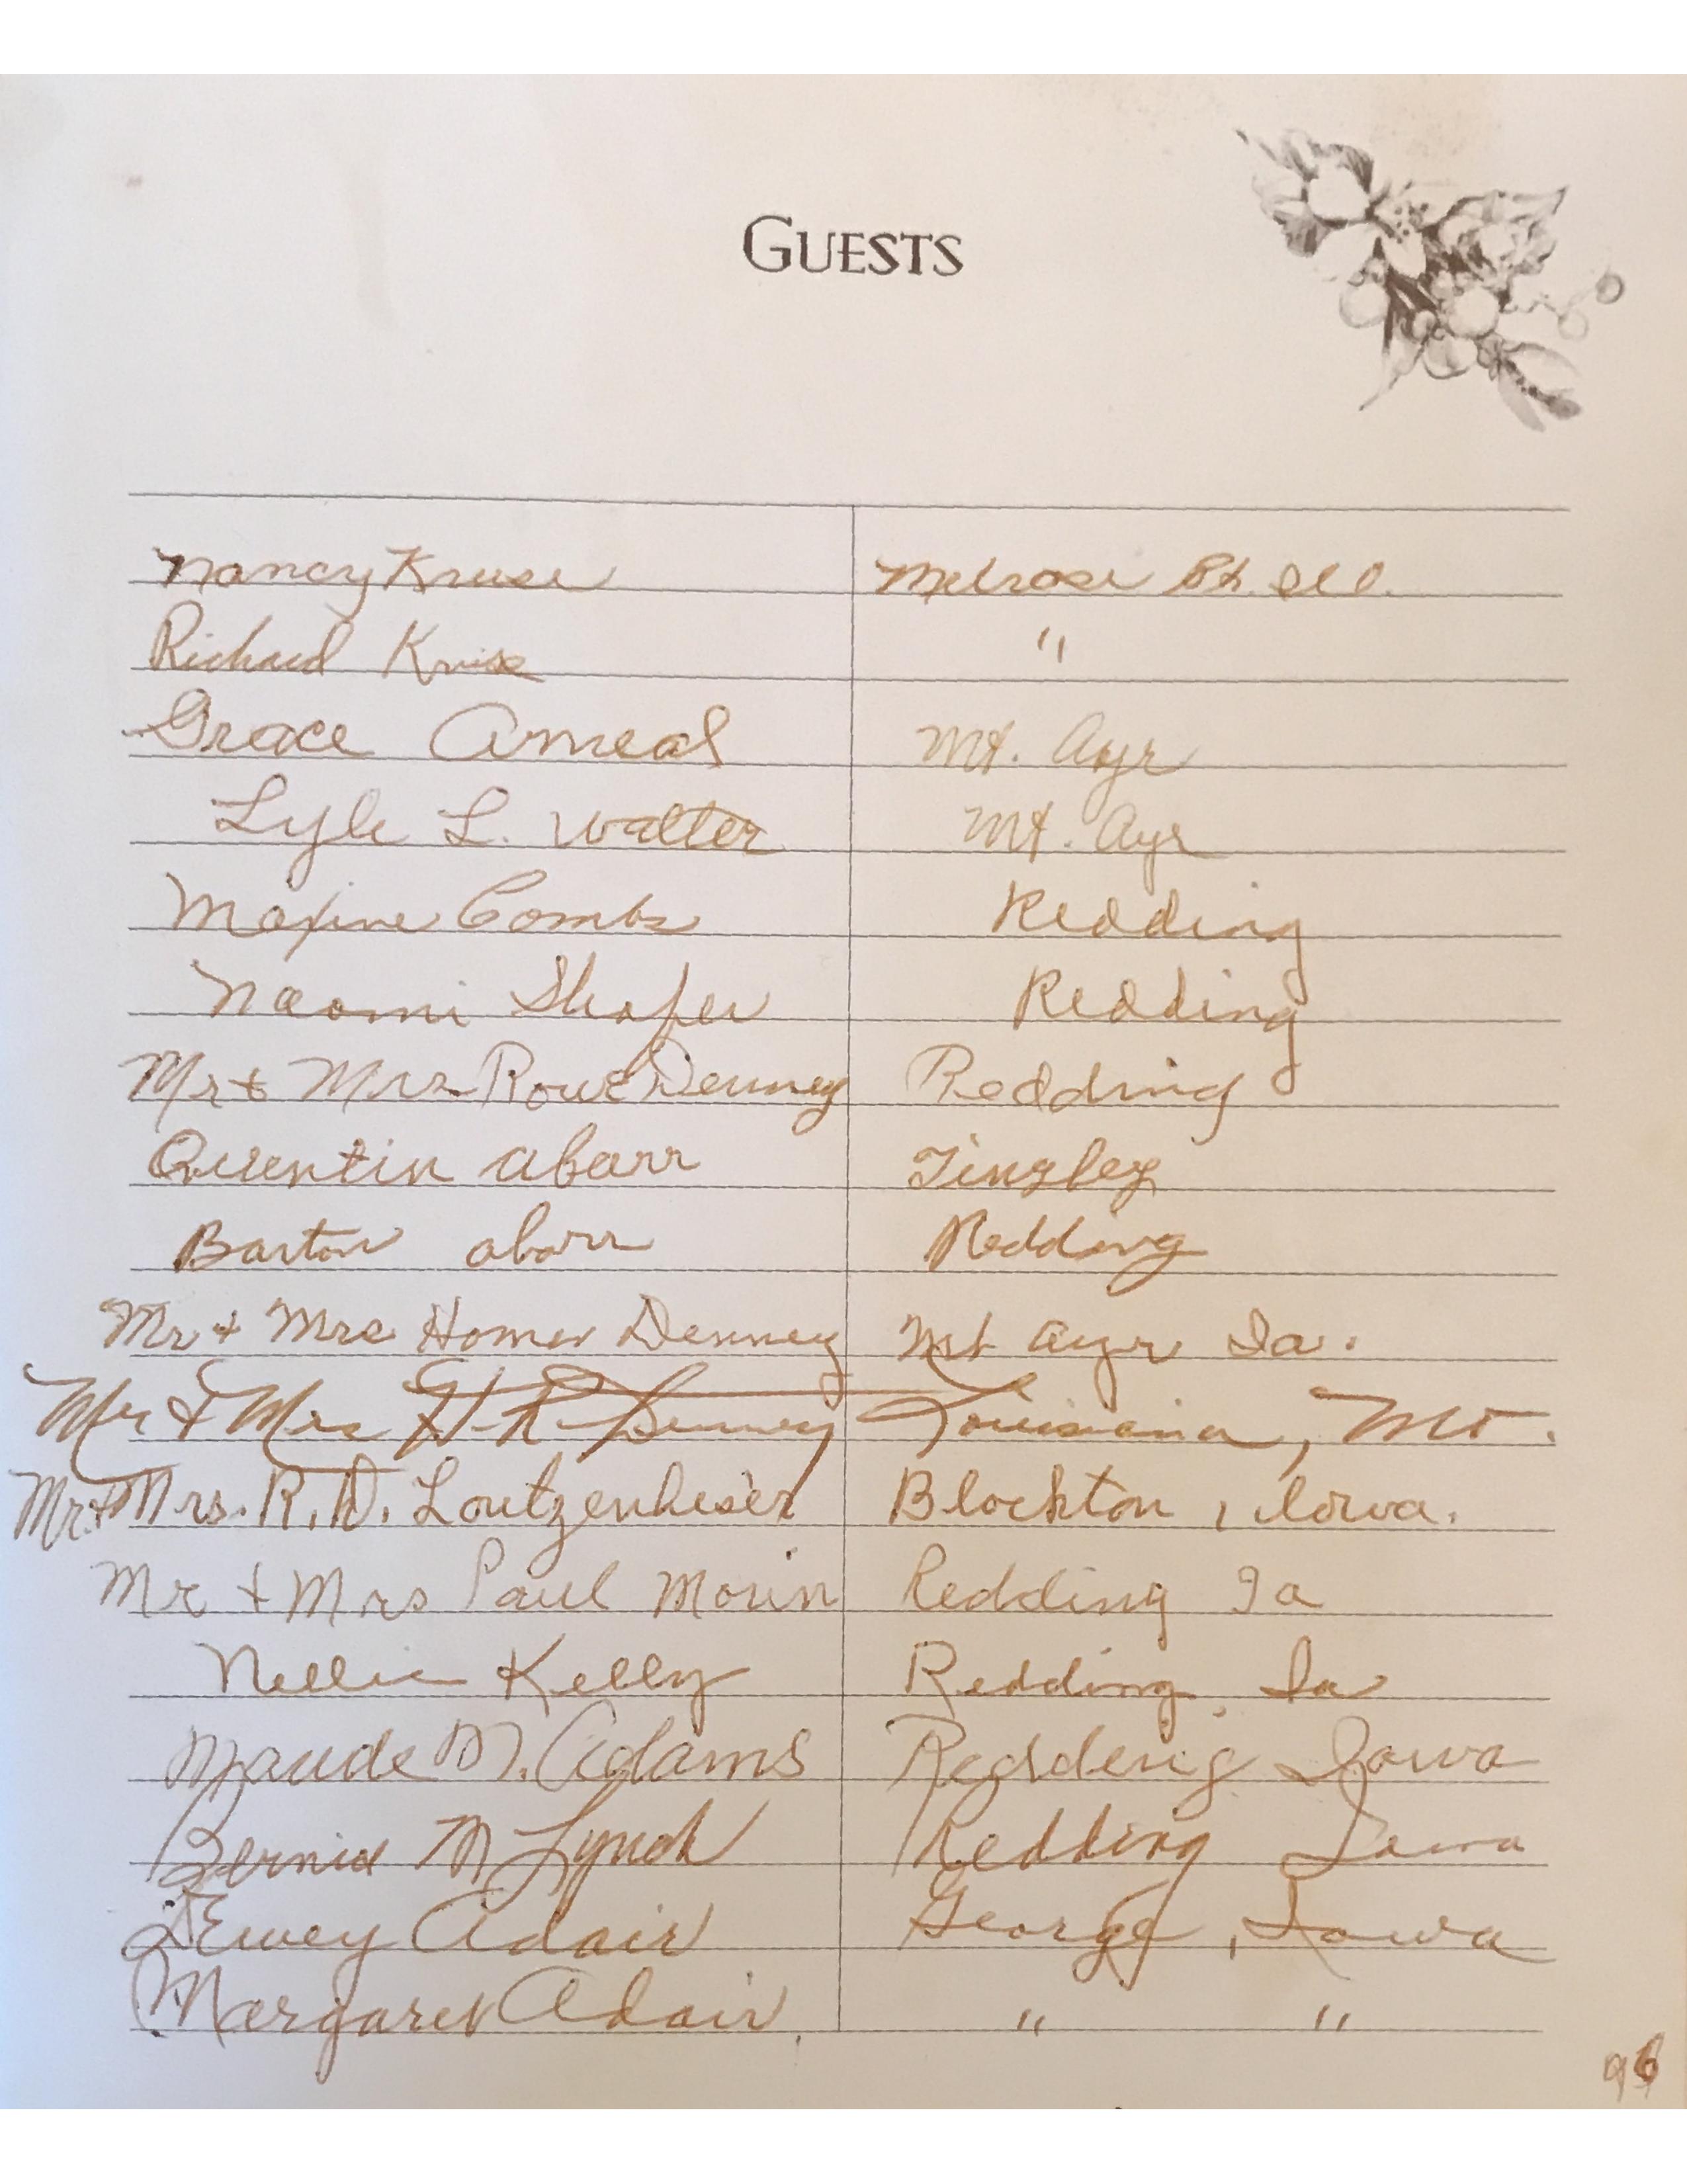 GUESTS
Nancy Kruse Melrose Pk. Ill.
Richard Kruse "
Grace Arneal Mt. Ayr
Lyle L. Walter Mt. Ayr
Maxine Combs Redding
Naomi Shafer Redding
Mr & Mrs Rowe Denney Redding
Quentin Abarr Tingley
Barton Abarr Redding
Mr & Mrs Homer Denney Mt Ayr Ia.
Mr & Mrs H. R. Denney Louisiana, Mo.
Mr. & Mrs. R. D. Loutzenheiser Blockton, Iowa.
Mr & Mrs Paul Morin Redding Ia
Nellie Kelly Redding, Ia
Maude M. Adams Reddeng Iowa
Bernice M Lynch Redding Iowa
Dewey Adair George, Iowa
Margaret Adair " "
96